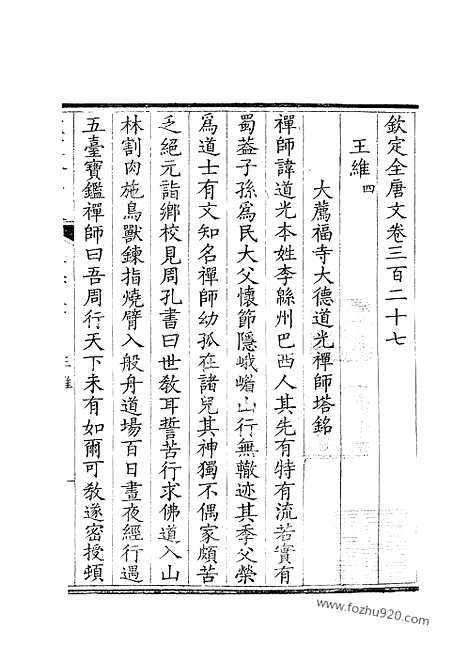 欽定全唐文卷三百二十七
王維 四
大薦福寺大德道光禪師塔銘
禪師諱道光本姓李緜州巴西人其先有特有流若實有
蜀葢子孫爲民大父懷節隱峨嵋山行無轍迹其季父榮
爲道士有文知名禪師幼孤在諸兒其神獨不偶家頗苦
乏絕元詣鄉校見周孔書曰世敎耳誓苦行求佛道入山
林割肉施鳥獸鍊指燒臂入般舟道場百日晝夜經行遇
五臺寶鑑禪師曰吾周行天下未有如爾可敎遂密授頓
王維
www.fozhu920.com